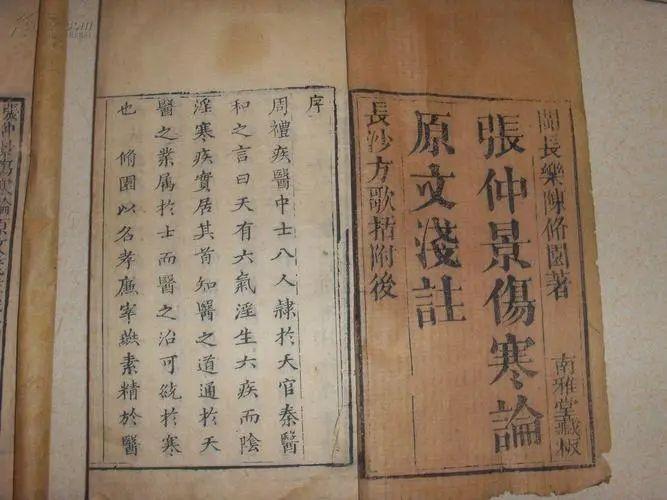 閩長樂陳脩園著
南雅堂藏板
張仲景傷寒論
原文淺註
長沙方歌括附後
序
周禮疾醫中士八人隸於天官秦醫
和之言曰天有六氣淫生六疾而陰
淫寒疾實居其首知醫之道通於天
醫之業属於士而醫之治可統於寒
也 脩園以名孝廉宰燕素精於醫
張仲景傷寒論原文